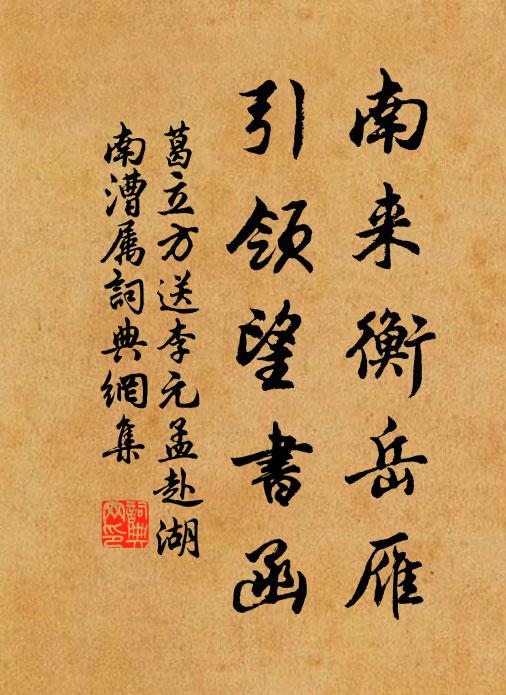 南来衡岳雁
引领望書函
葛立方送李元孟赴湖
南漕属詞典網集
詞典
网印